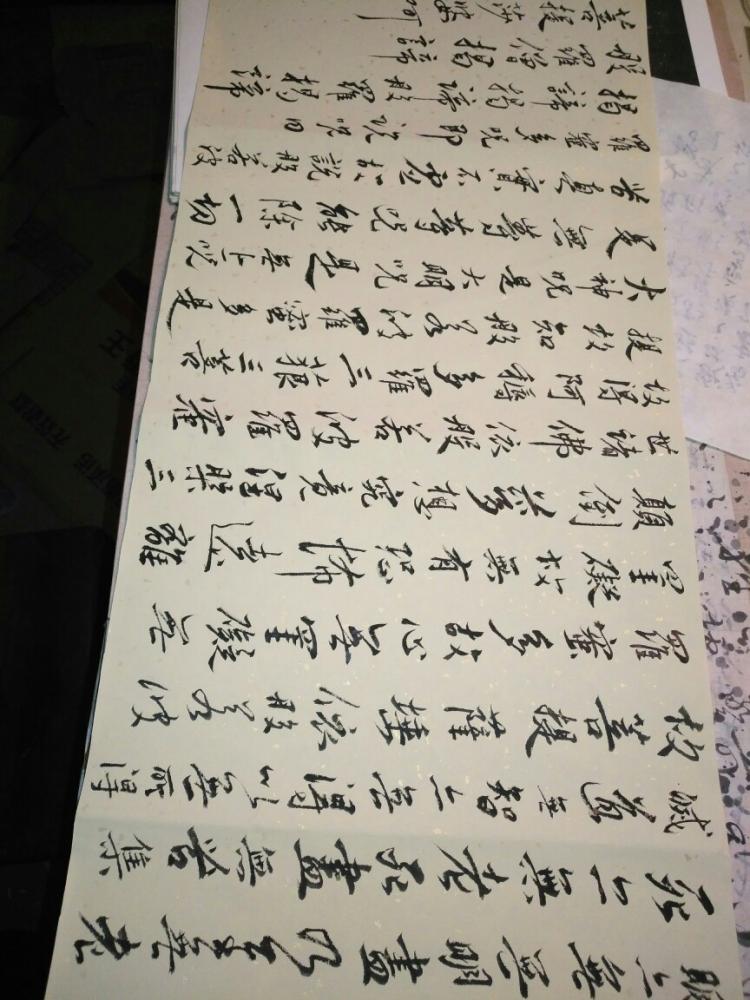 明亦無無明盡乃至無老
死亦無老死盡無苦集
滅道無智亦無得以無所得
故菩提薩埵依般若波
羅蜜多故心無罣礙無
罣礙故無有恐怖遠離
顛倒夢想究竟涅槃三
世諸佛依般若波羅蜜
故得阿耨多羅三藐三菩
提故知般若波羅蜜多是
大神咒是大明咒是無上咒
是無等等咒能除一切
苦真實不虛故說般若波
羅蜜多咒即說咒曰
揭諦揭諦般羅揭諦
般羅僧揭諦
菩提莎婆呵